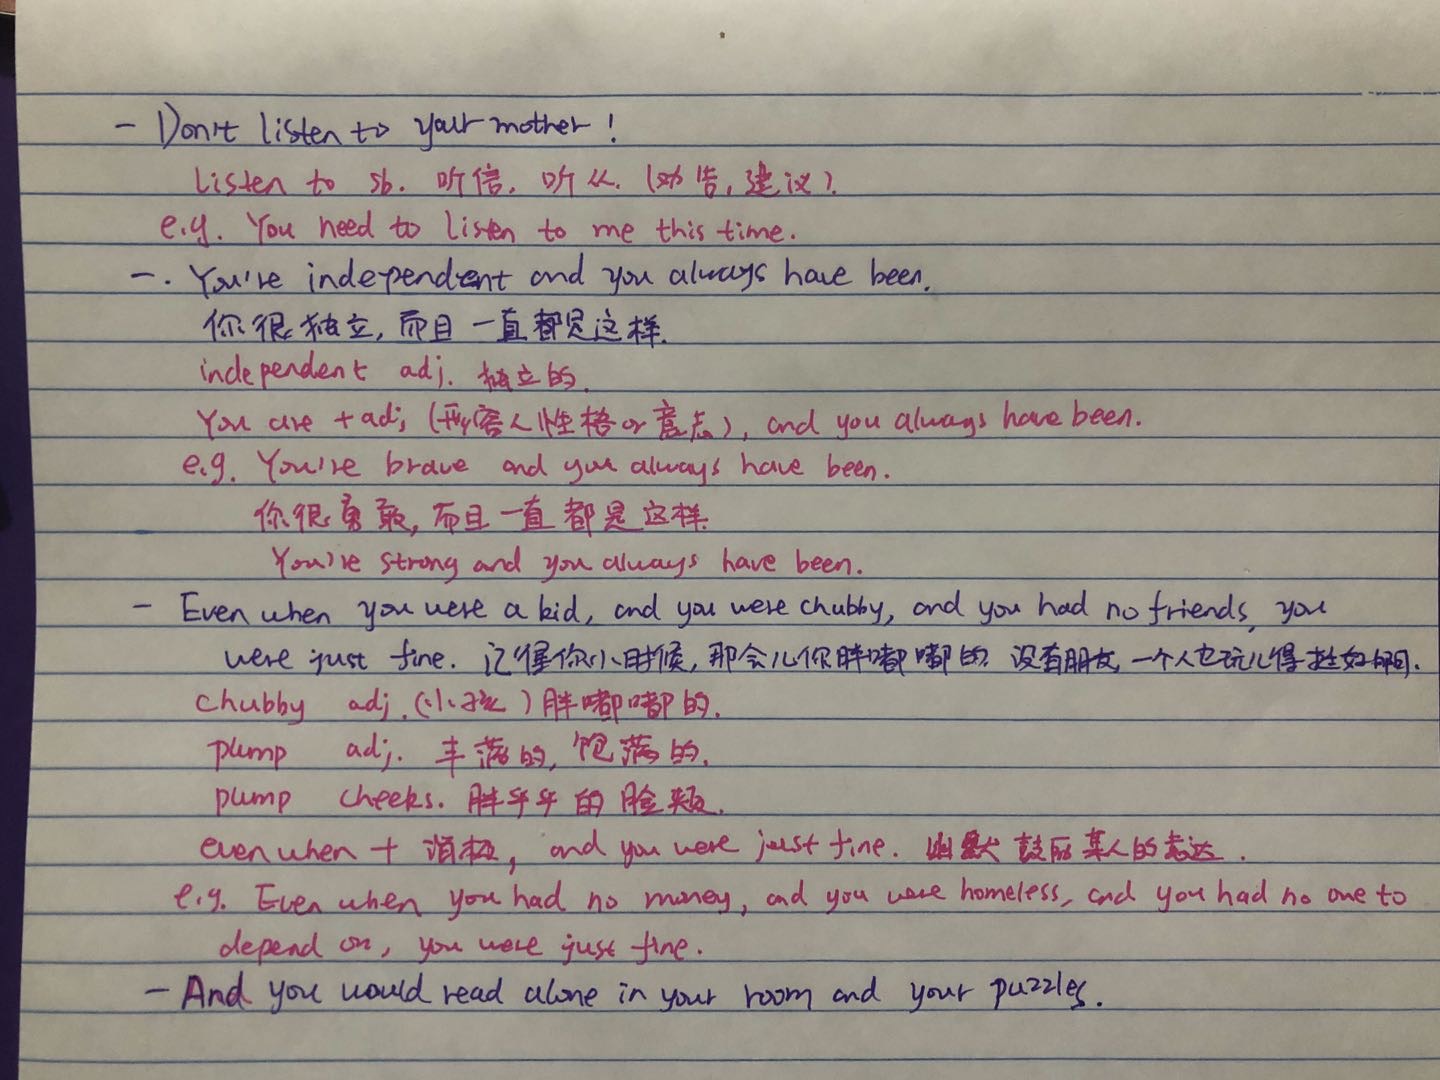 - Don't listen to your mother!
listen to sb. 听信. 听从. (劝告, 建议).
e.g. You need to listen to me this time.
-. You're independent and you always have been.
你很独立, 而且一直都是这样.
independent adj. 独立的.
You are + adj (形容人性格or意志), and you always have been.
e.g. You're brave and you always have been.
你很勇敢, 而且一直都是这样.
You're strong and you always have been.
- Even when you were a kid, and you were chubby, and you had no friends, you
were just fine. 记得你小时候, 那会儿你胖嘟嘟的. 没有朋友, 一个人也玩儿得挺好啊.
chubby adj. (小孩) 胖嘟嘟的.
plump adj. 丰满的, 饱满的.
plump cheeks. 胖乎乎的脸颊.
even when + 消极, and you were just fine. 幽默鼓励某人的表达.
e.g. Even when you had no money, and you were homeless, and you had no one to
depend on, you were just fine.
- And you would read alone in your room and your puzzles.